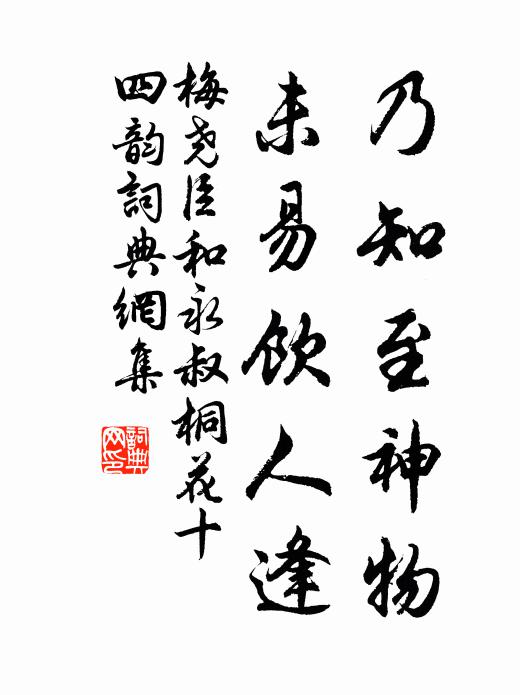 乃知至神物
未易飲人逢
梅尧臣和永叔桐花十
四韵詞典網集
詞典網印